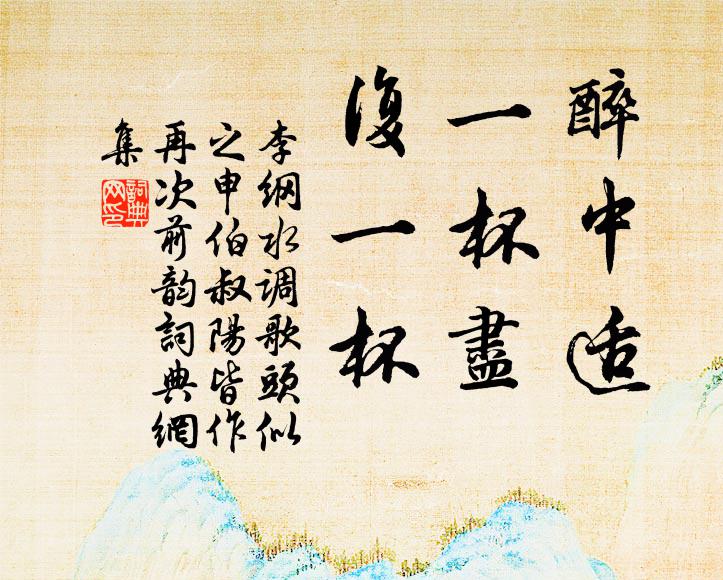 醉中适
一杯盡
復一杯
李綱水调歌頭似
之申伯叔陽皆作
再次前韵詞典網
集
詞典網印